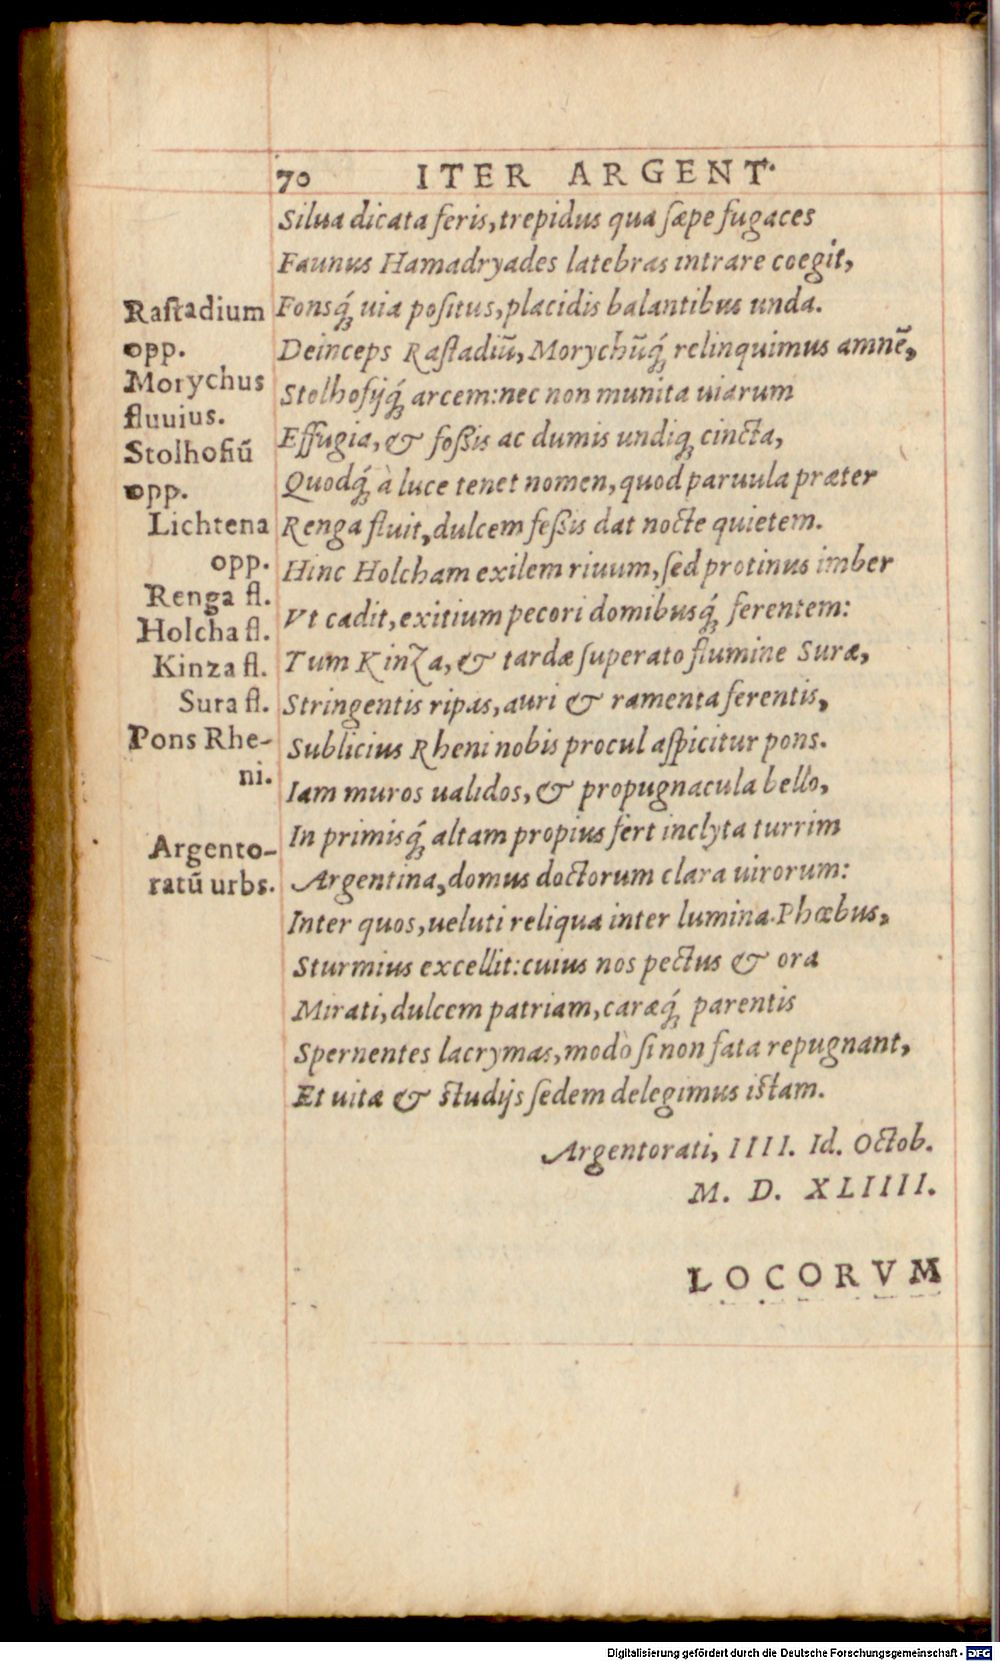 70 ITER ARGENT.
Silua dicata feris, trepidus qua sæpe fugaces
Faunus Hamadryades latebras intrare coegit,
Fonsq́ꝫ uia positus, placidis balantibus unda.
Deinceps Rastadiũ, Morychũq́ꝫ relinquimus amnẽ,
Stolhofijq́ꝫ arcem: nec non munita uiarum
Effugia, & foßis ac dumis undiqꝫ cincta,
Quodq́ꝫ à luce tenet nomen, quod paruula præter
Renga fluit, dulcem feßis dat nocte quietem.
Hinc Holcham exilem riuum, sed protinus imber
Vt cadit, exitium pecori domibusq́ꝫ ferentem:
Tum Kinza, & tardæ superato flumine Suræ,
Stringentis ripas, auri & ramenta ferentis,
Sublicius Rheni nobis procul aspicitur pons.
Iam muros ualidos, & propugnacula bello,
In primisq́ꝫ altam propius fert inclyta turrim
Argentina, domus doctorum clara uirorum:
Inter quos, ueluti reliqua inter lumina Phœbus,
Sturmius excellit: cuius nos pectus & ora
Mirati, dulcem patriam, caræq́ꝫ parentis
Spernentes lacrymas, modò si non fata repugnant,
Et uitæ & studijs sedem delegimus istam.
Argentorati, IIII. Id. Octob.
M. D. XLIIII.
LOCORVM
Rastadium
opp.
Morychus
fluuius.
Stolhofiũ
opp.
Lichtena
opp.
Renga fl.
Holcha fl.
Kinza fl.
Sura fl.
Pons Rhe-
ni.
Argento-
ratũ urbs.
Digitalisierung gefördert durch die Deutsche Forschungsgemeinschaft - DFG